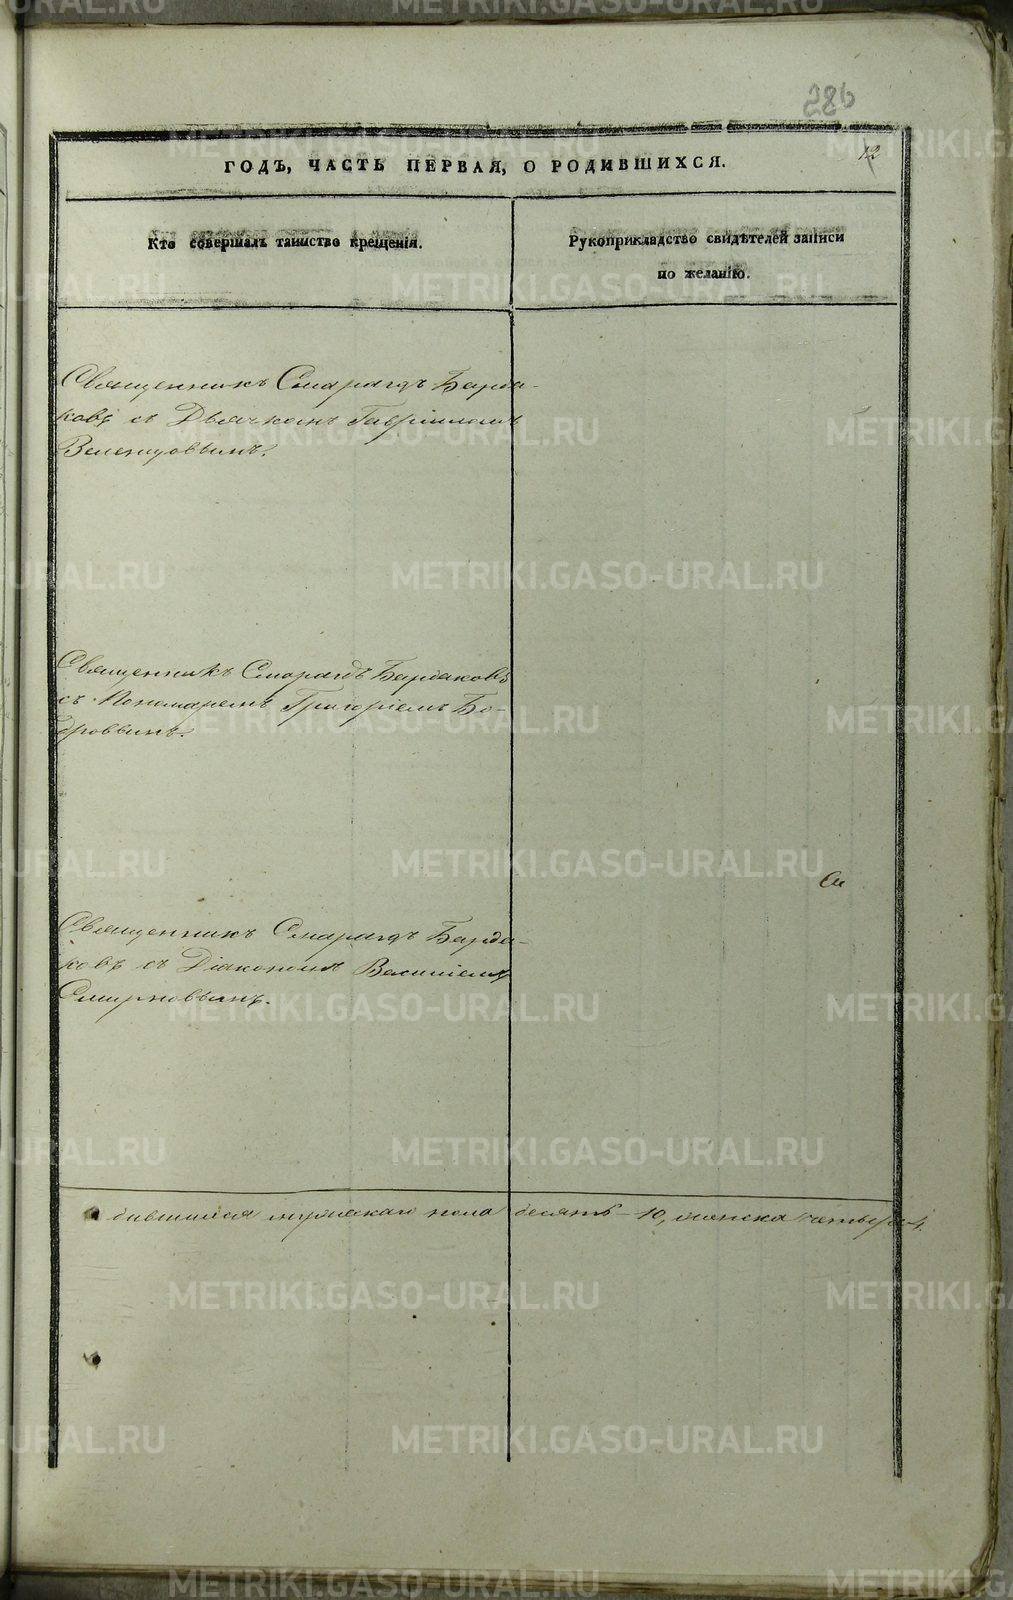 286
12
ГОДЪ, ЧАСТЬ ПЕРВАЯ, О РОДИВШИХСЯ.
Кто совершалъ таинство крещенія.
Рукоприкладство свидѣтелей записи
по желанію.
Священникъ Смарагдъ Барда-
ковъ съ Дьячкомъ Гавріиломъ
Священникъ Смарагдъ Бардаковъ
съ Пономаремъ Григоріемъ Бо-
бровымъ.
Священникъ Смарагдъ Барда-
ковъ съ Діакономъ Василіемъ
Смирновымъ.
мужескаго пола десять - 10, женска четыре 4.
METRIKI.GASO-URAL.RU